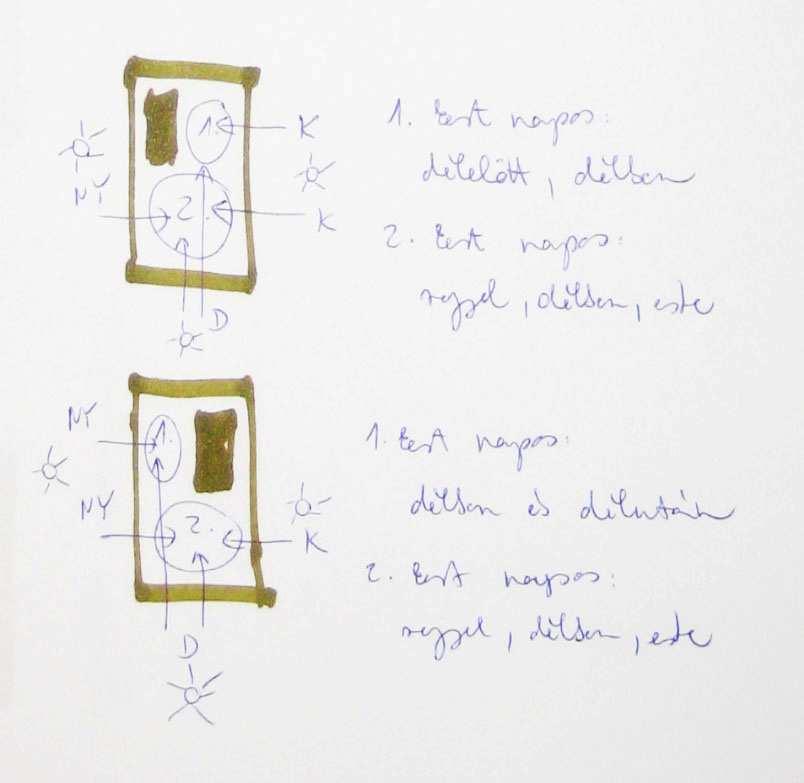 1.
K
NY
2.
K
D
1. Kert napos:
délelőtt, délben
2. Kert napos:
reggel, délben, este
NY
1.
NY
2.
K
D
1. Kert napos:
délben és délután
2. Kert napos:
reggel, délben, este